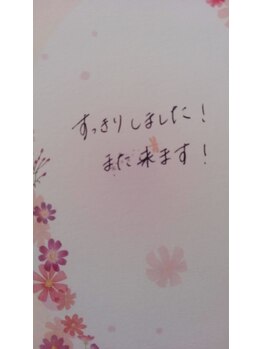 すっきりしました！
また来ます！